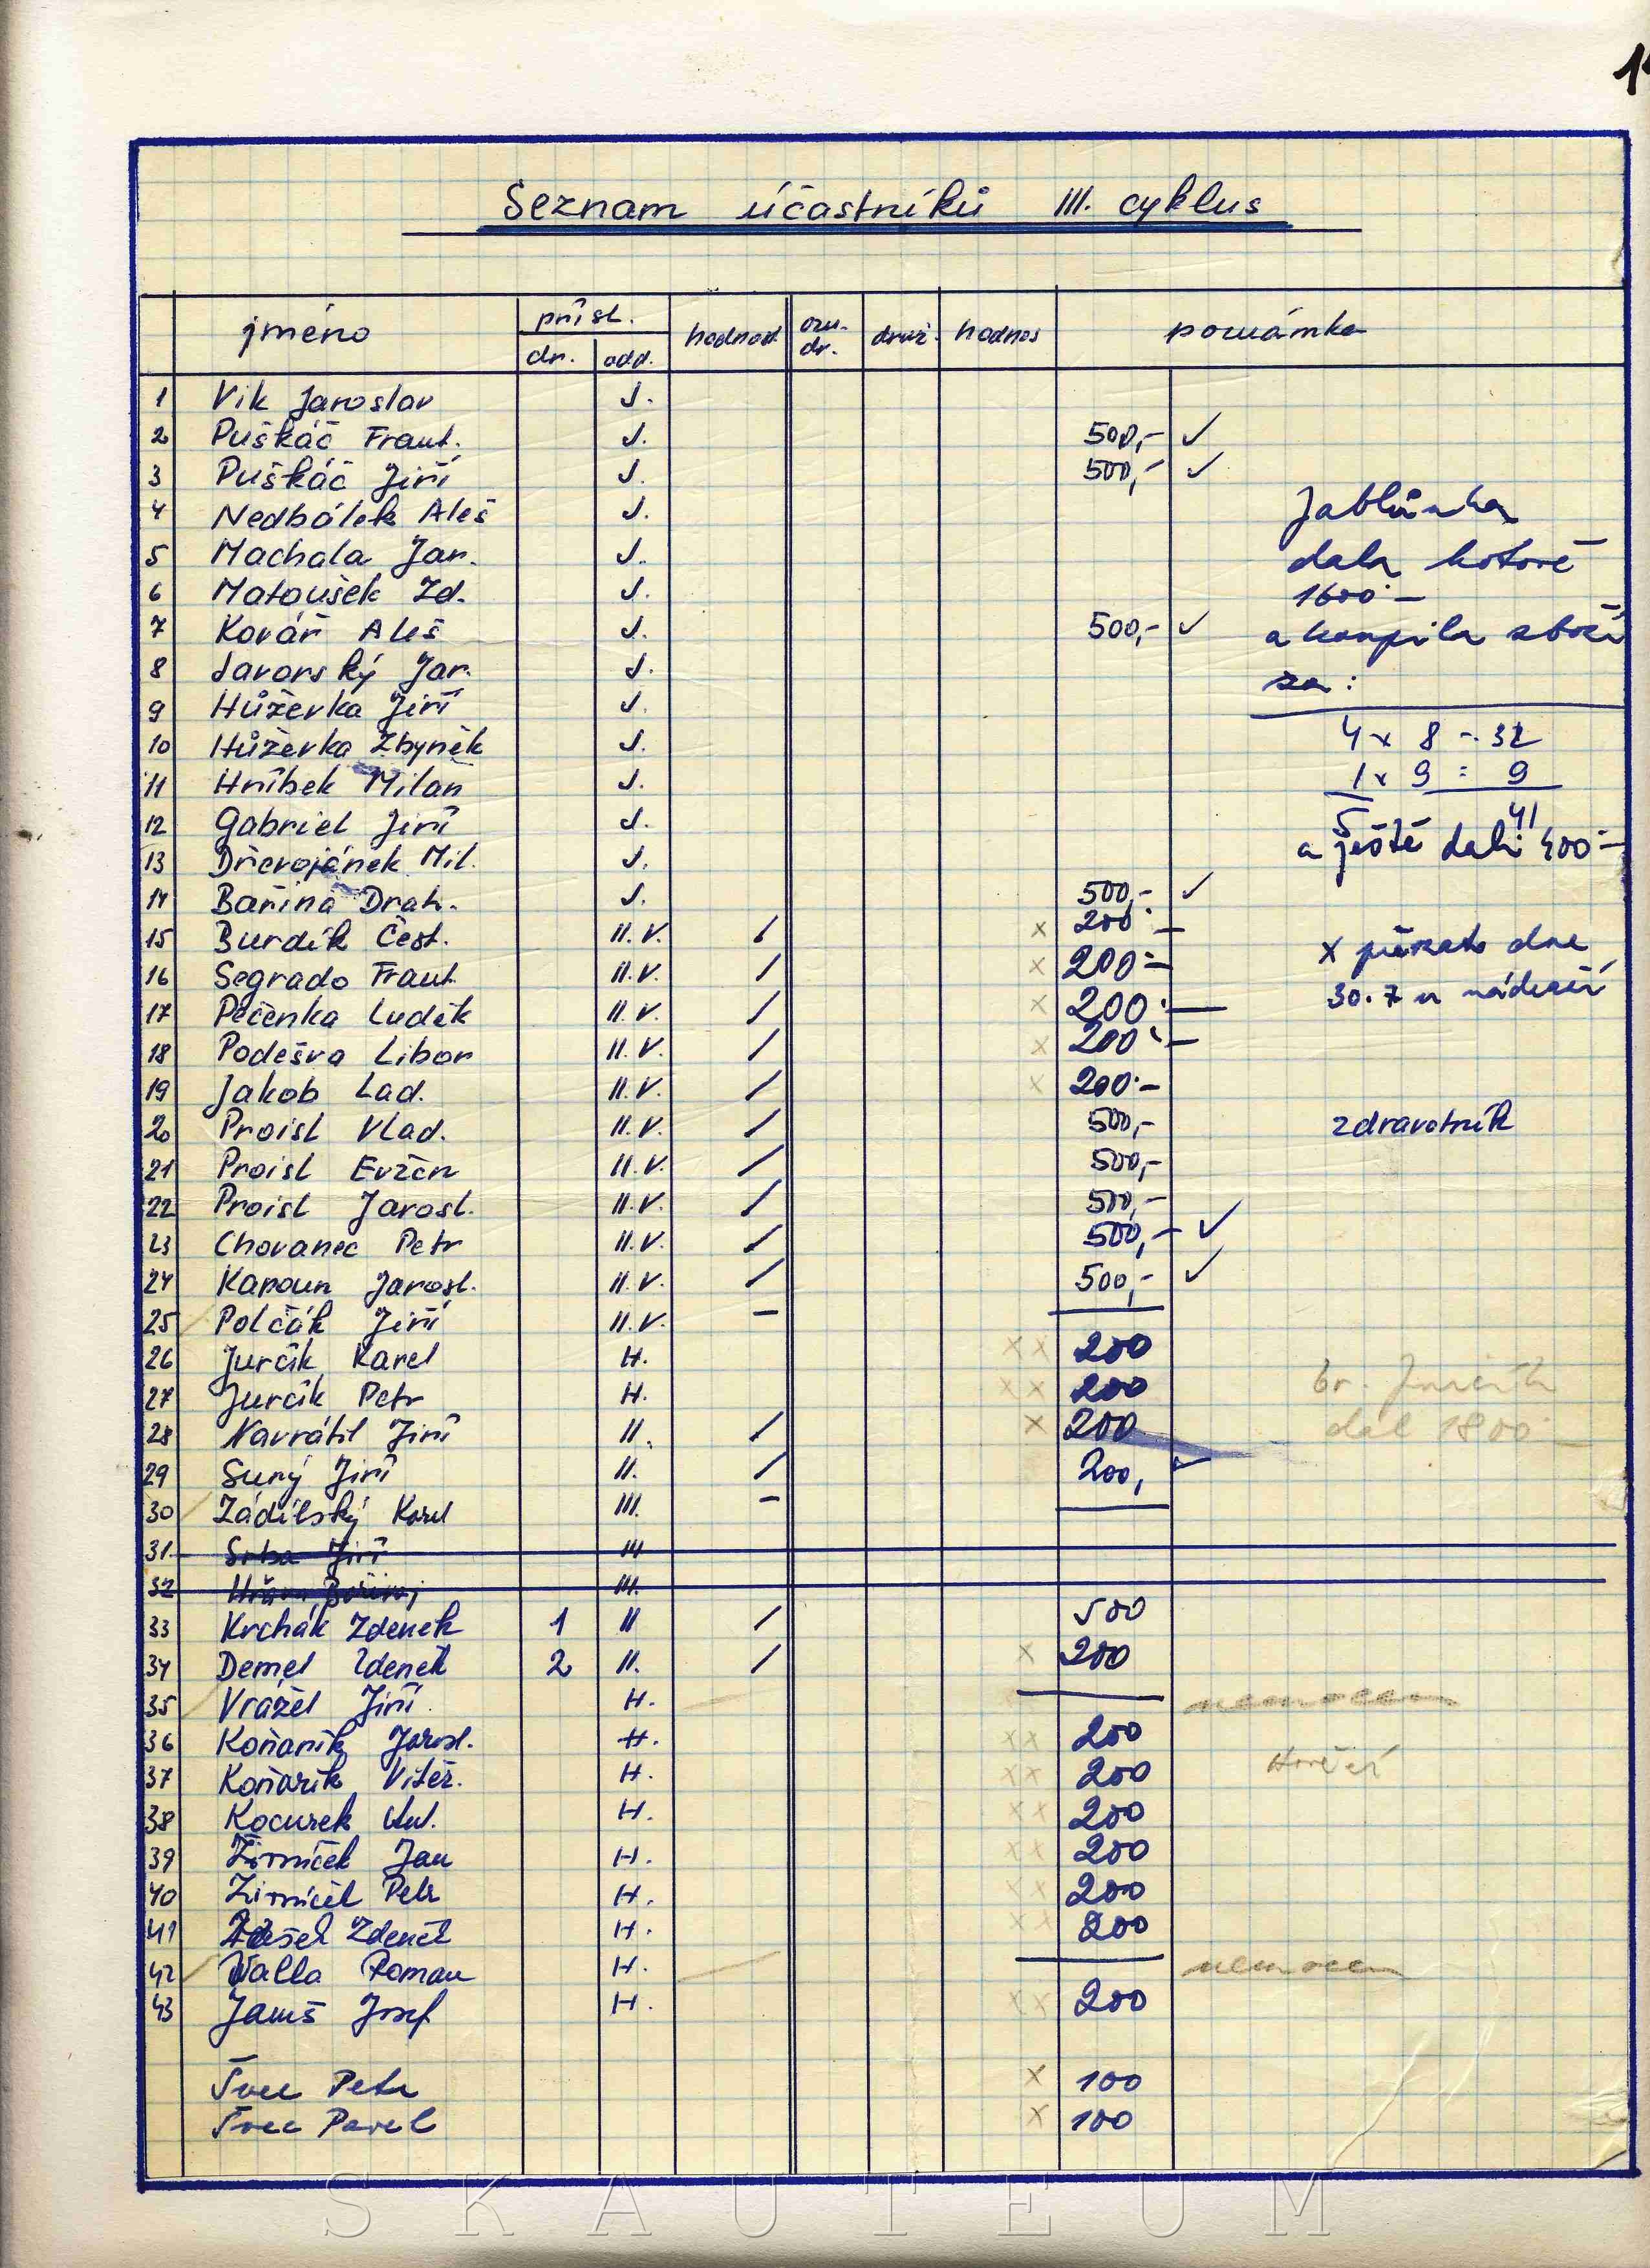 Seznam účastníků III. cyklus
jméno přísl. hodnod. druž. hodnos poznámka
dr. odd. dr.
1 Vik Jaroslav J.
2 Puškáč Frant. J. 500,- ✓
3 Puškáč Jiří J. 500,- ✓
4 Nedbálek Aleš J. Jablůnka
5 Machala Jar. J. dala hotově
6 Matoušek Zd. J. 1600.-
7 Kovář Aleš J. 500,- ✓ a koupila zboží
8 Javorský Jar. J. za:
9 Hůževka Jiří J. 4 x 8 = 32
10 Hůževka Zbyněk J. 1 x 9 = 9
11 Hříbek Milan J. 5 41
12 Gabriel Jiří J. a ještě dali 400.-
13 Dřevojánek Mil. J.
14 Bařina Drah. J. 500,- ✓
15 Burdík Čest. II.V. / x 200.- x
16 Segrado Frant. II.V. / x 200.- dne
17 Pečenka Luděk II.V. / x 200.- 30.7
18 Podešva Libor II.V. / x 200.-
19 Jakob Lad. II.V. / x 200.-
20 Proisl Vlad. II.V. / 500,- zdravotník
21 Proisl Evžen II.V. / 500,-
22 Proisl Jarosl. II.V. / 500,-
23 Chovanec Petr II.V. / 500,- ✓
24 Kapoun Jarosl. II.V. / 500,- ✓
25 Polčák Jiří II.V. –
26 Jurčík Karel H. x x 200 br. Jurčík
27 Jurčík Petr H. x x 200 dal 1800.-
28 Navrátil Jiří II. / x 200
29 Suný Jiří II. / 200,
30 Zádilský Karel III. –
31 Srba Jiří III
32 III.
33 Krchák Zdeněk 1 II / 500
34 Demel Zdeněk 2 II. / x 200
35 Vrážel Jiří H. nemocen
36 Koňařík Jarosl. H. x x 200
37 Koňařík Vítěz. H. x x 200
38 Kocurek H. x x 200
39 Žirníček Jan H. x x 200
40 Žirníček Petr H. x x 200
41 Zdeněk H. x x 200
42 Walla Roman H. nemocen
43 Janiš Josef H. x x 200
Švec Petr x 100
Švec Pavel x 100
SKAUTEUM